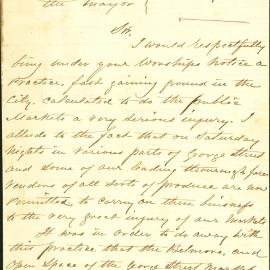 the Mayor
Sir,
I would respectfully
bring under your Worships Notice a
Practice, fast gaining ground in the
City, calculated to do the public
Markets a very serious injury. I
allude to the fact that on Saturday
Nights in various parts of George Street
and some of our leading thoroughfares
vendors of all sorts of produce are now
permitted to carry on their business
to the very great injury of our Markets
It was in order to do away with
this practice that the Belmore, and
open Space of the George Street Markets